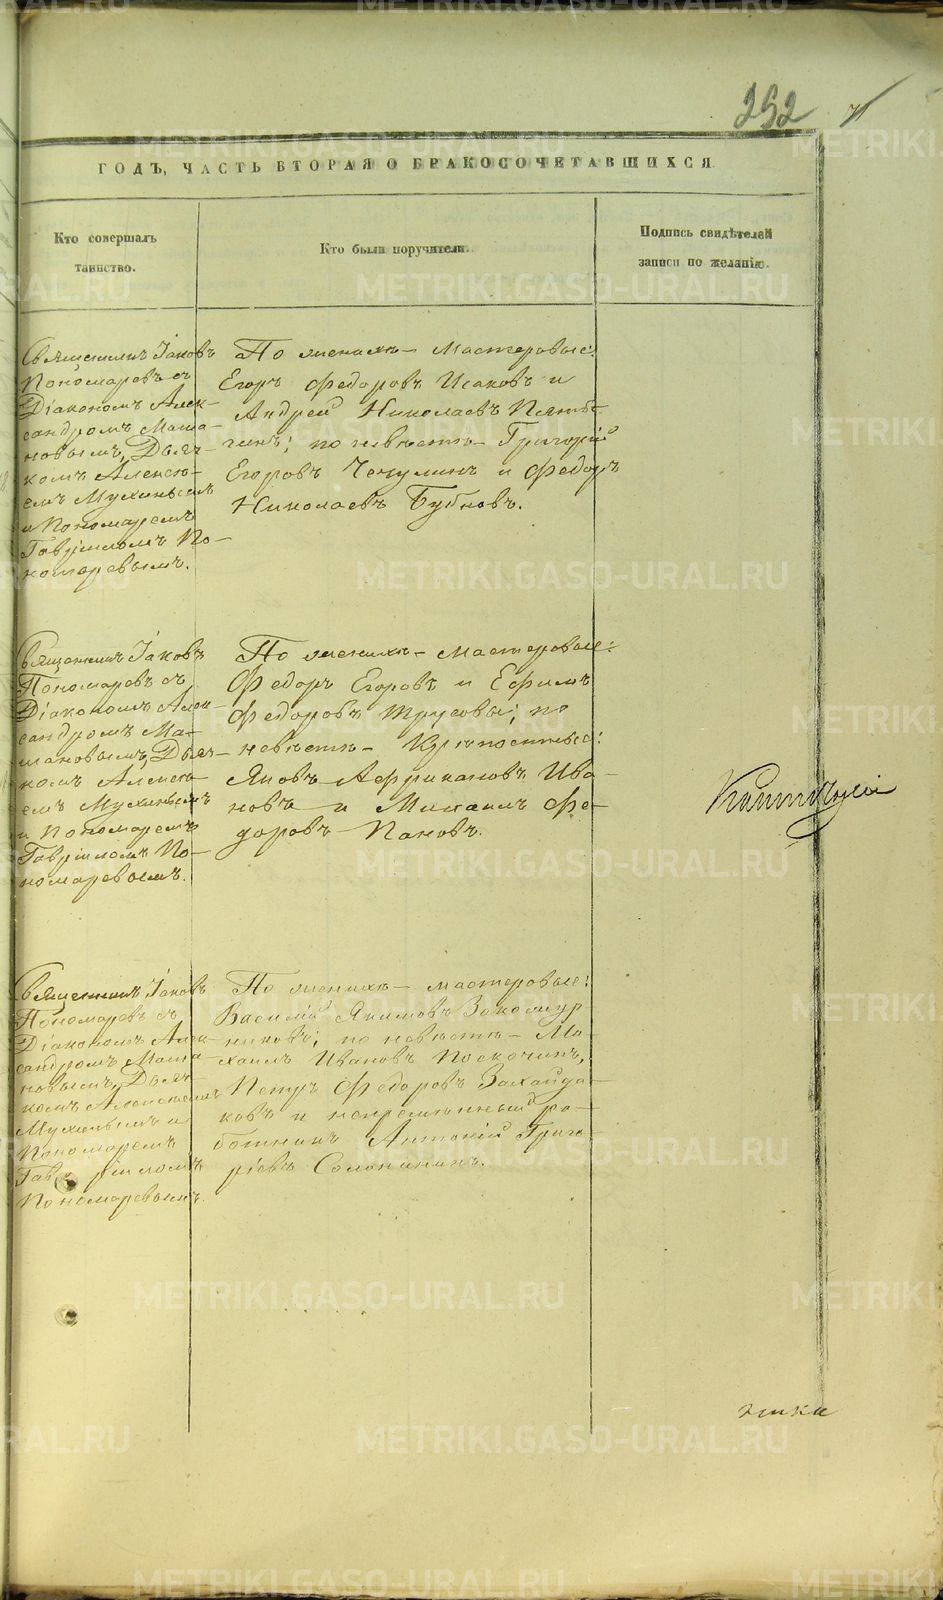 252
ГОДЪ, ЧАСТЬ ВТОРАЯ О БРАКОСОЧЕТАВШИХСЯ
Кто совершалъ
таинство.
Кто были поручители.
Подпись свидѣтелей
записи по желанію.
Священникъ Іаковъ
Пономаревъ съ
Діакономъ Алек-
сандромъ Маша-
новымъ, Дьяч-
комъ Алексѣ-
емъ Мухинымъ
и Пономаремъ
Гавріиломъ По-
номаревымъ.
По женихѣ – мастеровые:
Егоръ Федоровъ Исаковъ и
Андрей Николаевъ
по невѣстѣ – Григорій
Егоровъ Чечулинъ и Федоръ
Николаевъ Бубновъ.
Священникъ Іаковъ
Пономаревъ съ
Діакономъ Алек-
сандромъ Ма-
шановымъ, Дьяч-
комъ Алексѣ-
емъ Мухинымъ
и Пономаремъ
Гавріиломъ По-
номаревымъ.
По женихѣ – мастеровые:
Федоръ Егоровъ и Ефимъ
Федоровъ Трусовы; по
невѣстѣ – Крѣпостные:
Яковъ Африкановъ Ива-
новъ и Михаилъ Фе-
доровъ Пановъ.
Священникъ Іаковъ
Пономаревъ съ
Діакономъ Алек-
сандромъ Маша-
новымъ, Дьяч-
комъ Алексѣемъ
Мухинымъ и
Пономаремъ
Гавріиломъ
Пономаревымъ.
По женихѣ – мастеровые:
Василій Якимовъ Закожур
никовъ; по невѣстѣ – Ми-
хаилъ Ивановъ Поскочинъ,
Петръ Федоровъ
ковъ и непремѣнный ра-
ботникъ Антоній Григо-
ріевъ Солонининъ.
METRIKI.GASO-URAL.RU